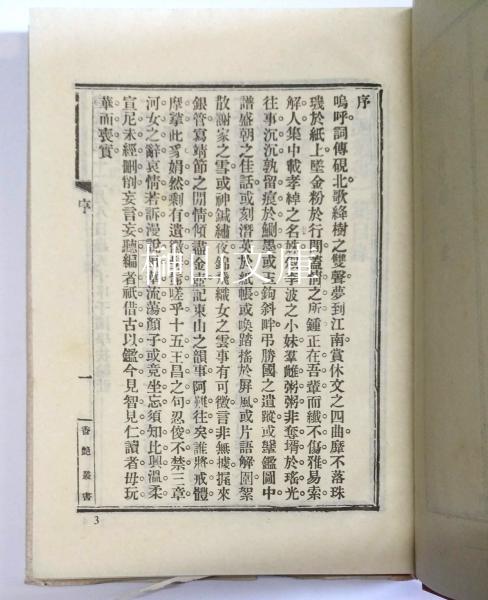 序
嗚呼詞傳硯北歌絳樹之雙聲夢到江南賞休文之四曲靡不落珠
璣於紙上墜金粉於行間蓋情之所鍾正在吾輩而纖不傷雅易索
解人集中載孝綽之名姝
李波之小妹羣雌粥粥非奪壻於瑤光
往事沉沉孰留痕於鯛墨或玉鉤斜畔弔勝國之遺蹤或鑿鑑圖中
譜盛朝之佳話或刻潛英於紙帳或喚踏搖於屏風或片語解圍絮
散謝家之雪或神鍼繡
錦飛織女之雲事有可徵言非無據握來
銀管寫靖節之閒情傾盡金壺記東山之韻事阿難往矣誰將戒體
摩挲此豸娟然剩有遺
嗟乎十五王昌之句忍俊不禁三章
河女之辭哀情若訴漫說
流蕩顏子或竟坐忘須知比興溫柔
宣尼未經刪削妄言妄聽編者祇借古以鑑今見智見仁讀者毋玩
華而喪實
序
一
香艷叢書
3
榊山文庫